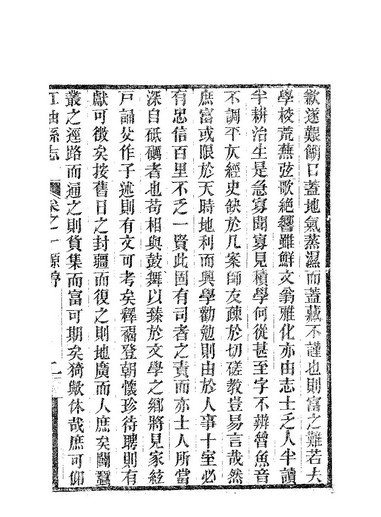 歉遂艱餬口蓋地氣蒸濕而蓋藏不謹也則富之難若夫
學校荒蕪弦歌絕響雖鮮文翁雅化亦由志士乏人半讀
半耕治生是急寡聞寡見積學何從甚至字不辨曾魚音
不調平仄經史缺於几案師友疎於切磋教豈易言哉然
庶富或限於天時地利而興學勸勉則由於人事十室必
有忠信百里不乏一賢此固有司者之責而亦士人所當
深自砥礪者也苟相與鼓舞以臻於文學之鄉將見家絃
戸誦父作子述則有文可考矣釋褐登朝懷珍待聘則有
獻可徵矣按舊日之封疆而復之則地廣而人庶矣闢蠶
叢之逕路而通之則貨集而富可期矣猗歟休哉庶可仰
縣志 卷之一